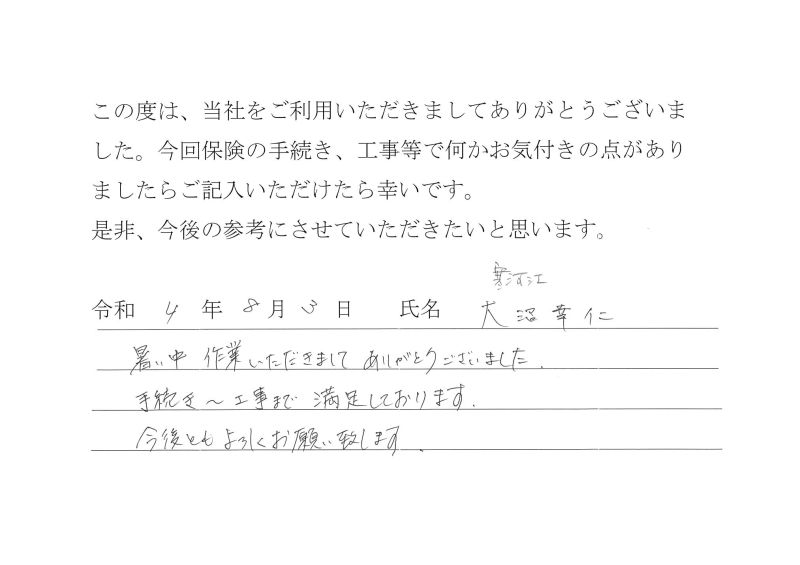 この度は、当社をご利用いただきましてありがとうございま
した。今回保険の手続き、工事等で何かお気付きの点があり
ましたらご記入いただけたら幸いです。
是非、今後の参考にさせていただきたいと思います。
寒河江
令和 4 年 8 月 3 日 氏名 大沼幸仁
暑い中 作業いただきまして ありがとうございました.
手続き〜工事まで 満足しております.
今後ともよろしくお願い致します.